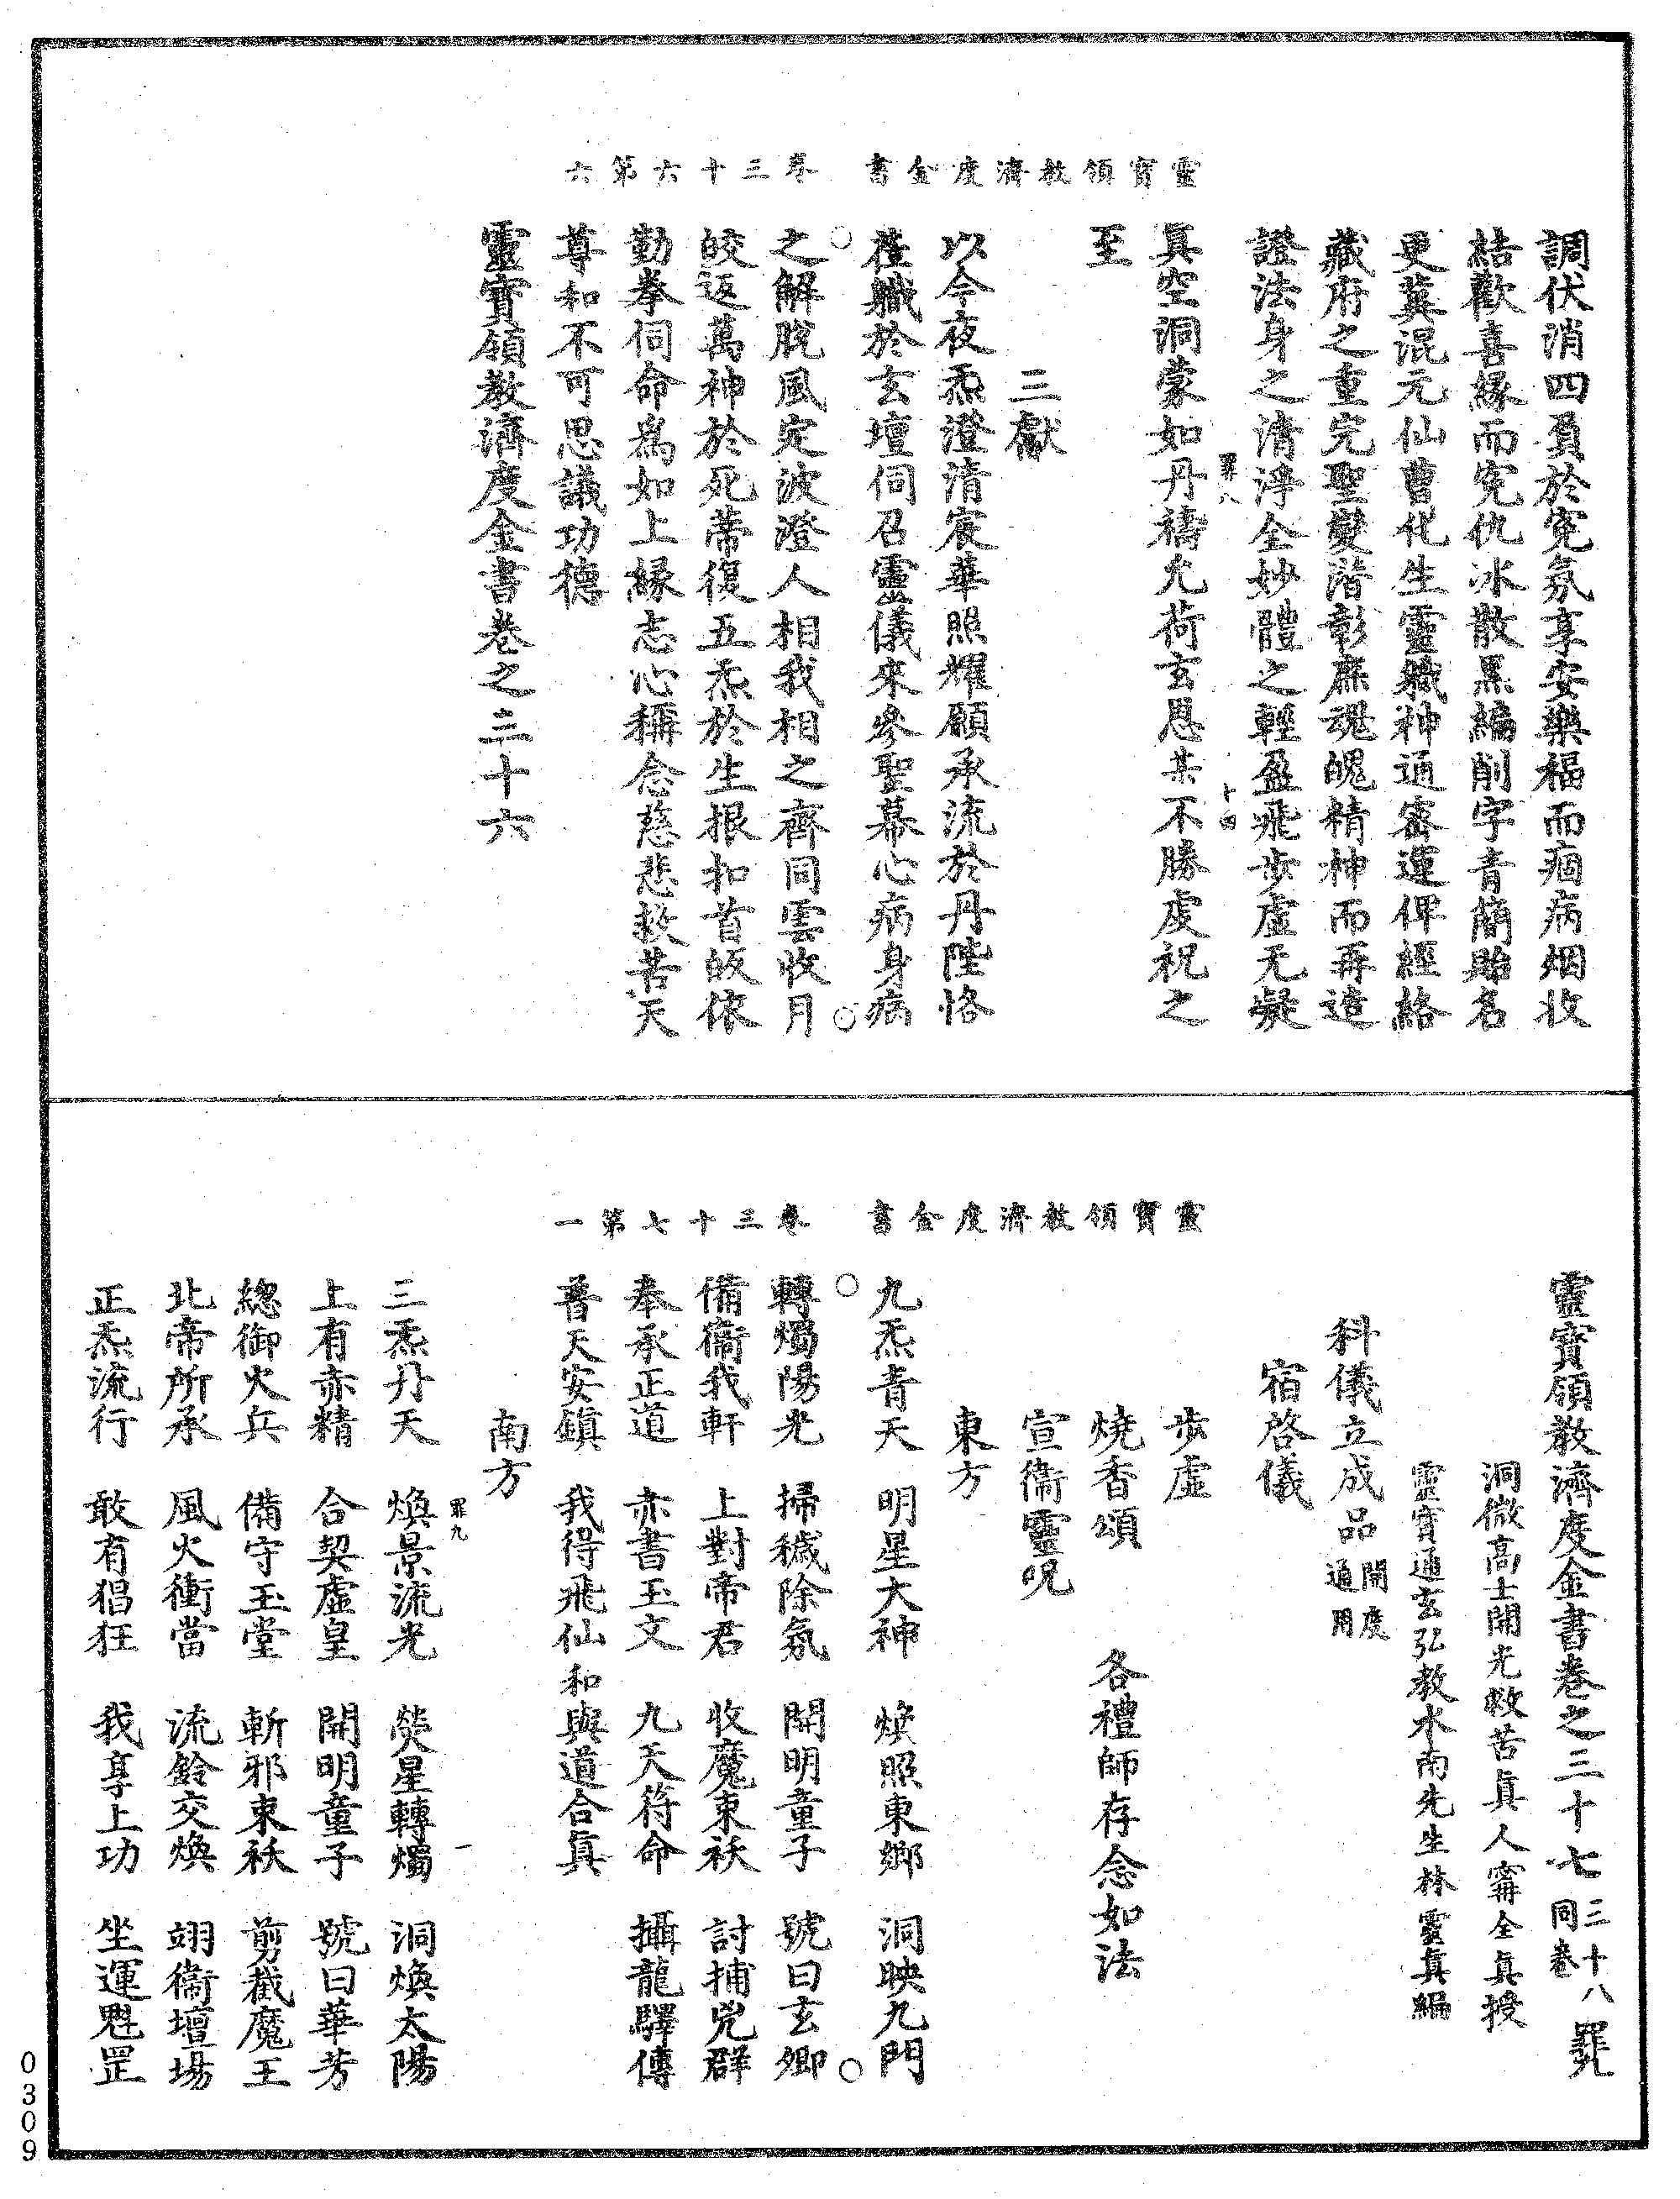 靈寶領教濟度金書　卷三十六第六
調伏消四負於寃氛享安樂福而痼病烟收
結歡喜緣而寃仇冰散黑編削字青簡貽名
更冀混元仙曹化生靈職神通密運俾經絡
藏府之重完聖變階彰庶魂魄精神而再造
證法身之清淨全妙體之輕盈飛步虛无凝
罪八　十四
眞空洞蒙如丹禱允荷玄恩某不勝虔祝之
至
三獻
以今夜炁澄清宸華照耀願承流於丹陛恪
在職於玄壇伺召靈儀來參聖幕心病身病
之解脫風定波澄人相我相之齊同雲收月
皎返萬神於死蒂復五炁於生根扣首皈依
勤拳伺命爲如上緣志心稱念慈悲救苦天
尊和不可思議功德
靈寶領教濟度金書卷之三十六
靈寶領教濟度金書　卷三十七第一
靈寶領教濟度金書卷之三十七 三十八同卷 罪九
洞微高士開光救苦眞人甯全眞授
靈寶通玄弘教水南先生林靈眞編
科儀立成品 開度通用
宿啓儀
步虛
燒香頌　各禮師存念如法
宣衞靈呪
東方
九炁青天　明星大神　煥照東鄉　洞映九門
轉燭陽光　掃穢除氛　開明童子　號曰玄卿
備衞我軒　上對帝君　收魔束祅　討捕兇群
奉承正道　赤書玉文　九天符命　攝龍驛傳
普天安鎮　我得飛仙　和與道合眞
南方
罪九　一
三炁丹天　煥景流光　熒星轉燭　洞煥太陽
上有赤精　合契虛皇　開明童子　號曰華芳
總御火兵　備守玉堂　斬邪束祅　剪截魔王
北帝所承　風火衝當　流鈴交煥　翊衞壇場
正炁流行　敢有猖狂　我享上功　坐運魁罡
0309